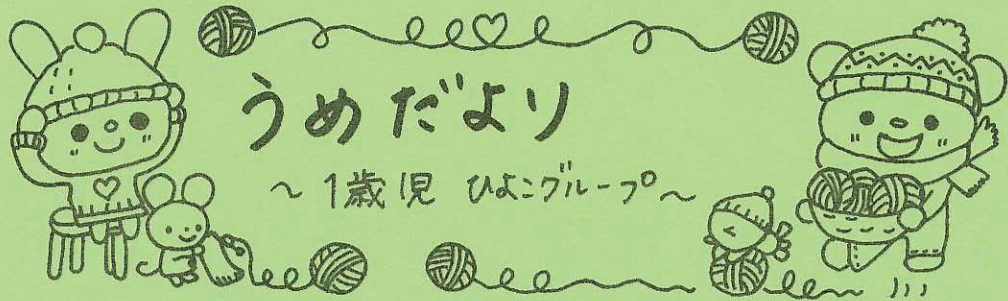 うめだより
～1歳児 ひよこグループ～